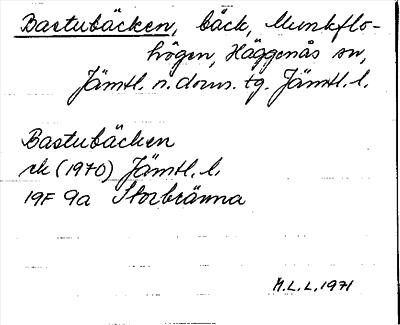 Bastubäcken, bäck, Munkflo-
högen, Häggenås sn,
Jämtl. n. doms. tg. Jämtl. l.
Bastubäcken
rk (1970) Jämtl. l.
19F 9a Storbränna
M.L.L. 1971